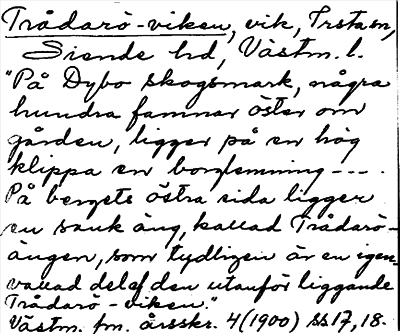 Trådarö-viken, vik, Irsta sn,
Siende hd, Västm. l.
"På Dybo skogsmark, några
hundra famnar öster om
gården, ligger på en hög
klippa en borglemning ---.
På bergets östra sida ligger
en sank äng, kallad Trådarö-
ängen, som tydligen är en igen-
vallad del af den utanför liggande
Trådarö-viken."
Västm. fm. årsskr. 4 (1900) ss 17, 18.